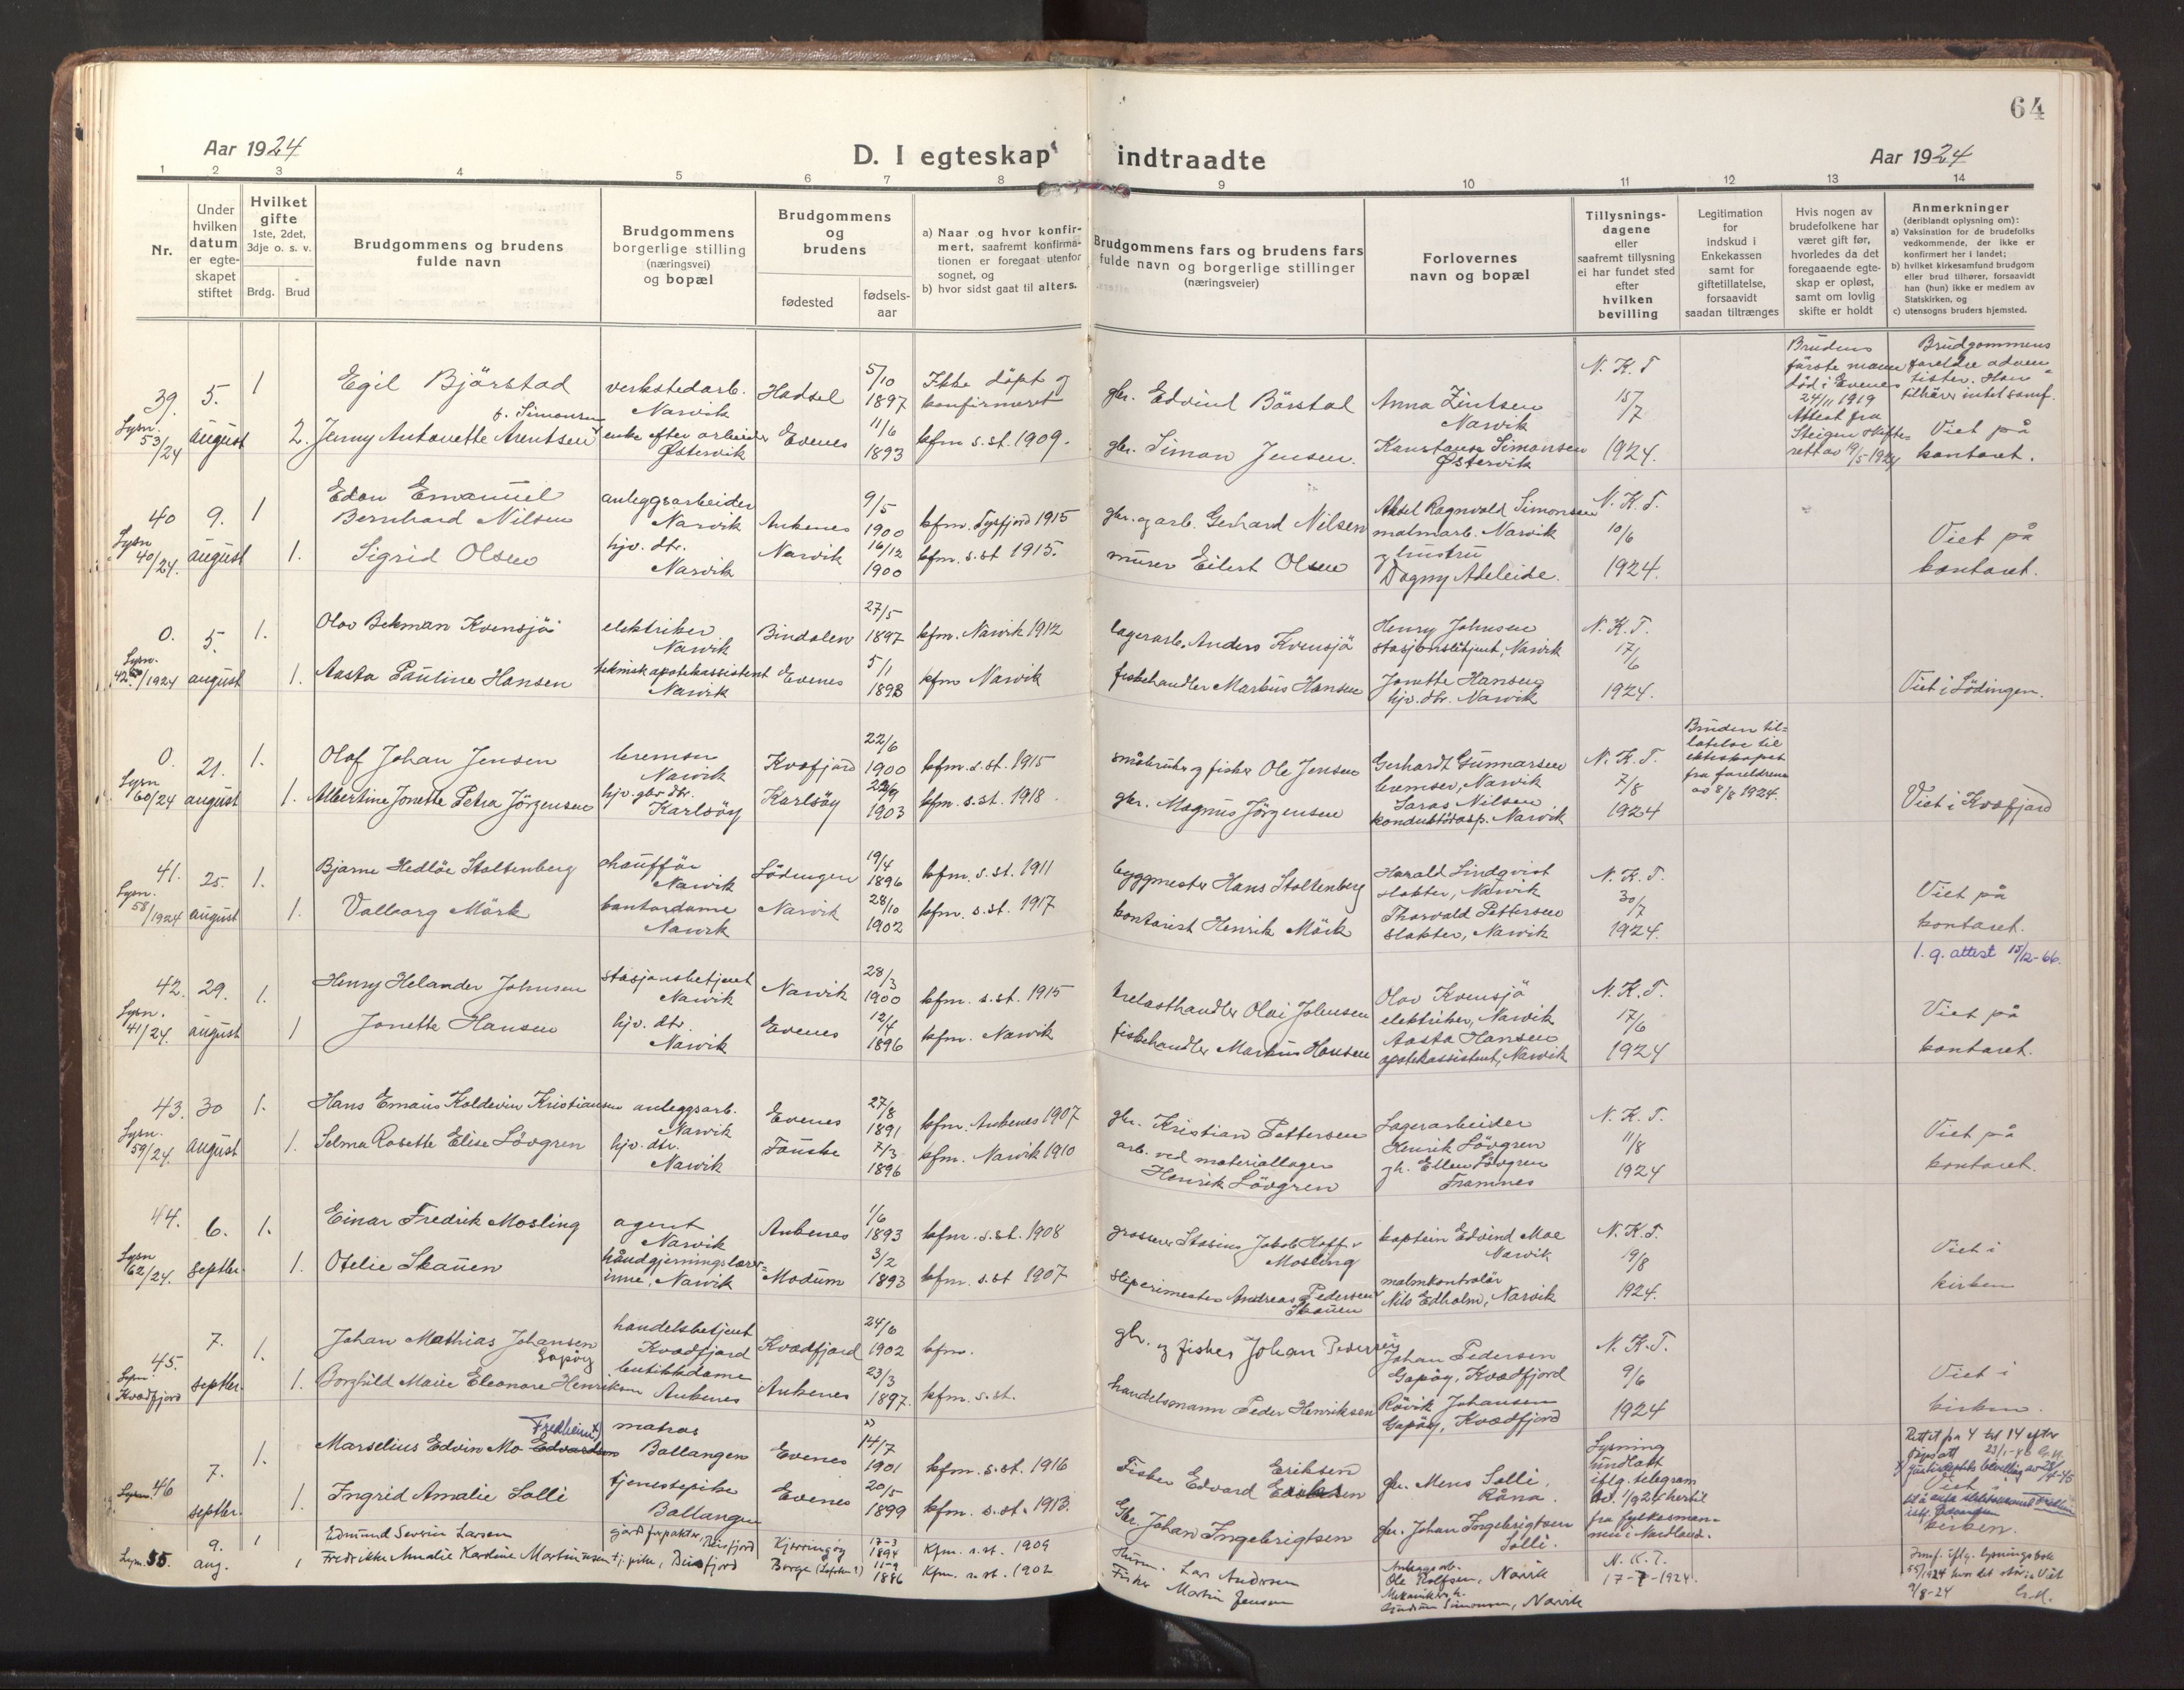 64
Aar 1924
D. I egteskap indtraadte
Aar 1924
1 2 3 4 5 6 7 8 9 10 11 12 13 14
Nr.
Under hvilken datum er egteskapet stiftet
Hvilket gifte
1ste, 2det, 3dje o. s. v.
Brdg. Brud
Brudgommens og brudens fulde navn
Brudgommens borgerlige stilling (næringsvei) og bopæl
Brudgommens og brudens
fødested
fødselsaar
a) Naar og hvor konfirmert, saafremt konfirmationen er foregaat utenfor sognet, og
b) hvor sidst gaat til alters.
Brudgommens fars og brudens fars fulde navn og borgerlige stillinger (næringsveier)
Forlovernes navn og bopæl
Tillysningsdagene eller saafremt tillysning ei har fundet sted efter hvilken bevilling
Legitimation for indskud i Enkekassen samt for giftetillatelse, forsaavidt saadan tiltrænges
Hvis nogen av brudefolkene har været gift før, hvorledes da det foregaaende egteskap er opløst, samt om lovlig skifte er holdt
Anmerkninger
(deriblandt oplysning om):
a) Vaksination for de brudefolks vedkommende, der ikke er konfirmert her i landet;
b) hvilket kirkesamfund brudgom eller brud tilhører, forsaavidt han (hun) ikke er medlem av Statskirken, og
c) utensogns bruders hjemsted.
39. 5. 1 Egil Bjørstad verkstedarb. Narvik Hadsel 5/10 1897 Ikke døpt og konfirmeret gbr. Edvind Börstad Anna Zintsen Narvik N. K. T 15/7 1924.
Lysn. 53/24 august 2. Jenny Antonette Arentsen f. Simonsen enke efter arbeider Østervik Evenes 11/6 1893 kfm s. st. 1909. gbr. Simon Jensen. Konstanse Simonsen Østervik
Brudens første mann død i Evenes 24/11 1919 Attest fra Steigen skifterett av 19/5-1924
Brudgommens foreldre adventister. Han tilhører intet samf. Viet på kontoret.
40 9. 1 Edon Emanuel Bernhard Nilsen anleggsarbeider Narvik Ankenes 9/5 1900 kfm. Tysfjord 1915 gbr. og arb. Gerhard Nilsen Aksel Ragnvald Simonsen malmarb. Narvik N. K. T. 10/6 1924.
Lysn 40/24. august 1. Sigrid Olsen hjv. dtr. Narvik Narvik 16/12 1900 kfm. s. st 1915. murer Eilert Olsen og hustru Dagny Adeleide. Viet på kontoret.
0. 5. 1. Olav Bekman Kvensjö elektriker Narvik Bindalen 27/5 1897 kfm. Narvik 1912 lagerarb. Anders Kvensjö Henry Johnsen stasjonsbetjent, Narvik N. K. T. 17/6 1924.
Lysn. 42/1924 august 1. Aasta Pauline Hansen teknisk apotekassistent Narvik Evenes 5/1 1898 kfm Narvik fiskehandler Markus Hansen Jonette Hansen hjv. dtr. Narvik Viet i Lödingen.
0. 21. 1. Olaf Johan Jensen bremser Narvik Kvæfjord 22/6 1900 kfm. s. st. 1915 småbruker og fisker Ole Jensen Gerhardt Gunnarsen bremser, Narvik N. K. T. 7/8 1924
Lysn 60/24 august 1. Albertine Jonette Petra Jörgensen hjv. gbr dtr. Karlsöy Karlsöy 1903 kfm. s. st. 1918. gbr. Magnus Jörgensen Nilsen konduktörasp. Narvik
Bruden tillatelse til ekteskapet fra foreldrene av 8/8 1924.
Viet i Kvæfjord
41. 25. 1. Bjarne Hedlöe Stoltenberg chauffør Narvik Lödingen 19/4 1896 kfm. s. st. 1911 byggmester Hans Stoltenberg Harald Lindqvist slakter, Narvik N. K. T. 30/7 1924.
Lysn. 58/1924 august 1. Valborg Mörk kontordame Narvik Narvik 28/10 1902 kfm. s. st. 1917 kontorist Henrik Mörk Thorvald Pettersen slakter, Narvik Viet på kontoret.
l. g. attest 15/12-66.
42. 29. 1. Henry Helander Johnsen stasjonsbetjent Narvik Narvik 28/3 1900 kfm. s. st. 1915 trelasthandler Olai Johnsen Olav Kvensjö elektriker, Narvik N. K. T. 17/6 1924
Lysn. 41/24. august 1 Jonette Hansen hjv. dtr. Narvik Evenes 12/4 1896 kfm. Narvik fiskehandler Markus Hansen Aasta Hansen apotekassistent, Narvik Viet på kontoret.
43. 30 1. Hans Emaus Koldevin Kristiansen anleggsarb. Narvik Evenes 27/8 1891 kfm. Ankenes 1907 gbr. Kristian Pettersen Lagerarbeider Henrik Lövgren N. K. T. 11/8 1924
Lysn. 59/24. august 1. Selma Rosette Elise Lövgren hjv. dtr. Narvik Fauske 7/3 1896 kfm. Narvik 1910 arb. ved materiallager Henrik Lövgren Ellen Lövgren Framnes Viet på kontoret.
44. 6. 1. Einar Fredrik Mosling agent Narvik Ankenes 1/6 1893 kfm. s. st. 1908 grosserer Jakob Hoff Mosling kaptein Edvind Moe Narvik N. K. T. 19/8 1924.
Lysn 62/24. septbr. 1. Otelie Skauen håndgjerningslærerinne, Narvik Modum 3/2 1893 kfm. s. st 1907 sliperimester Andreas Pedersen Skauen malmkontrolör Nils Edholm, Narvik Viet i kirken
45. 7. 1. Johan Mathias Johansen Gapöy handelsbetjent Kvæfjord Kvædfjord 24/6 1902 kfm. gbr. og fisker Johan Pedersen Johan Pedersen Gapöy, Kvædfjord N. K. T. 9/6 1924
Lysn. Kvædfjord septbr. 1. Borghild Marie Eleonore Henriksen butikkdame Ankenes Ankenes 23/3 1897. kfm. s. st. handelsmann Peder Henriksen Rövik Johansen Gapöy, Kvædfjord Viet i kirken.
46 7. 1. Marselius Edvin Mo Edvardsen Fredheim x) matros Ballangen Evenes 14/7 1901 kfm. s. st. 1916 Fisker Edvard Eriksen gbr. Mens Solli, Råna.
septbr. 1. Ingrid Amalie Solli tjenestepike Ballangen Evenes 20/5 1899 kfm. s. st. 1913. Gbr. Johan Ingebrigtsen gbr. Johan Ingebrigtsen Solli.
Lysning undlatt iflg. telegram av 1/9 24 hertil fra fylkesmannen i Nordland.
Rettet fra 4 til 14 efter
Viet i kirken.
9. 1 Edmund Severin Larsen gjordforpakter, Beisfjord Kjerringøy 17-3 1894 Kfm. s. st. 1909 Lars Andersen Anleggsarb. Ole Rolfsen, Narvik N. K. T. 17-7-1924.
Lysn. 55. aug. 1 Fredrikke Amalie Kardine Martinussen tj. pike, Beisfjord Borge (Lofoten?) 11-9 1886 Kfm. s. st. 1902 Fisker Martin Jensen Gudrun Simonsen, Narvik
Innf. iflg. lysningsbok 55/1924 hvor det står: Viet 9/8-24